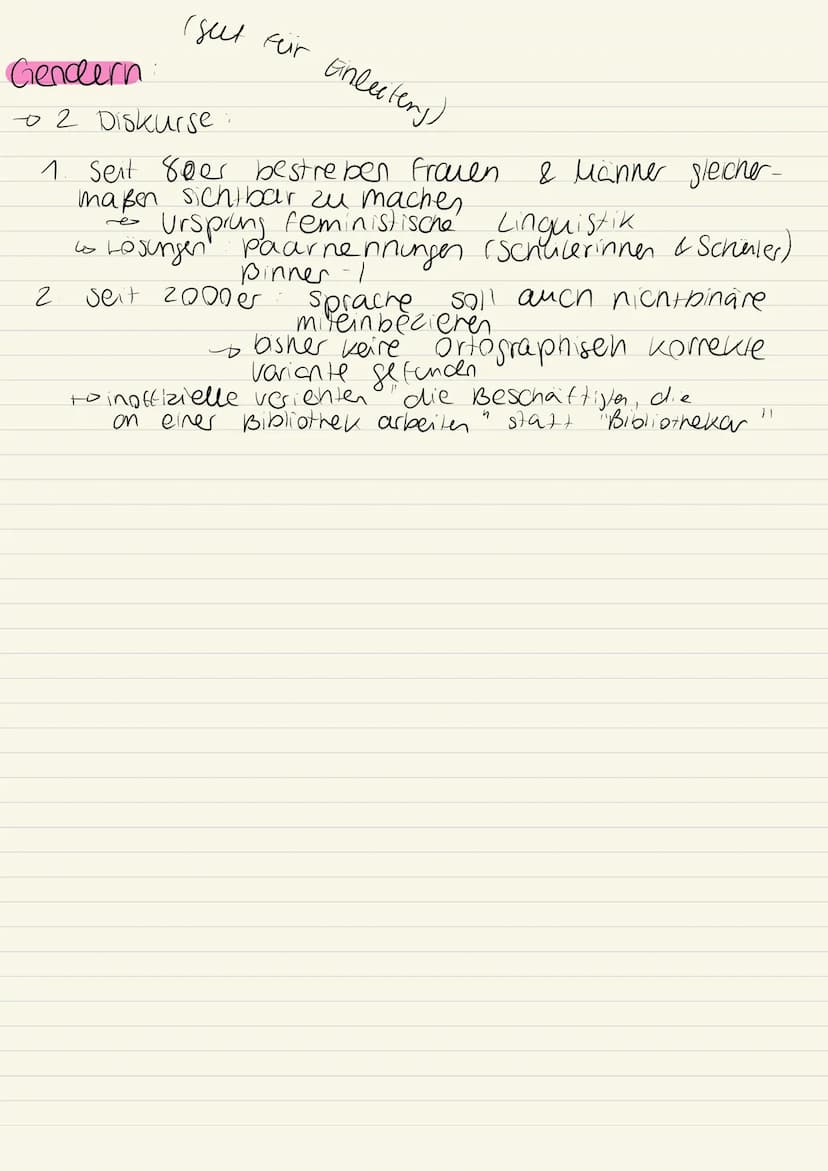 (gut für Einleitung)
Gendern:
→ 2 Diskurse:
1. Seit 80er bestreben Frauen & Männer gleicher-
maßen sichtbar zu machen
→ Ursprung feministische Linguistik
↳ Lösungen: Paarnennungen (Schülerinnen & Schüler)
Binnen-I
2. seit 2000er: Sprache soll auch nichtbinäre
miteinbezieren
→ bisher keine ortographisch korrekte
Variante gefunden
→ inoffizielle varienten "die Beschäftigten, die
an einer Bibliothek arbeiten" statt "Bibliothekar"